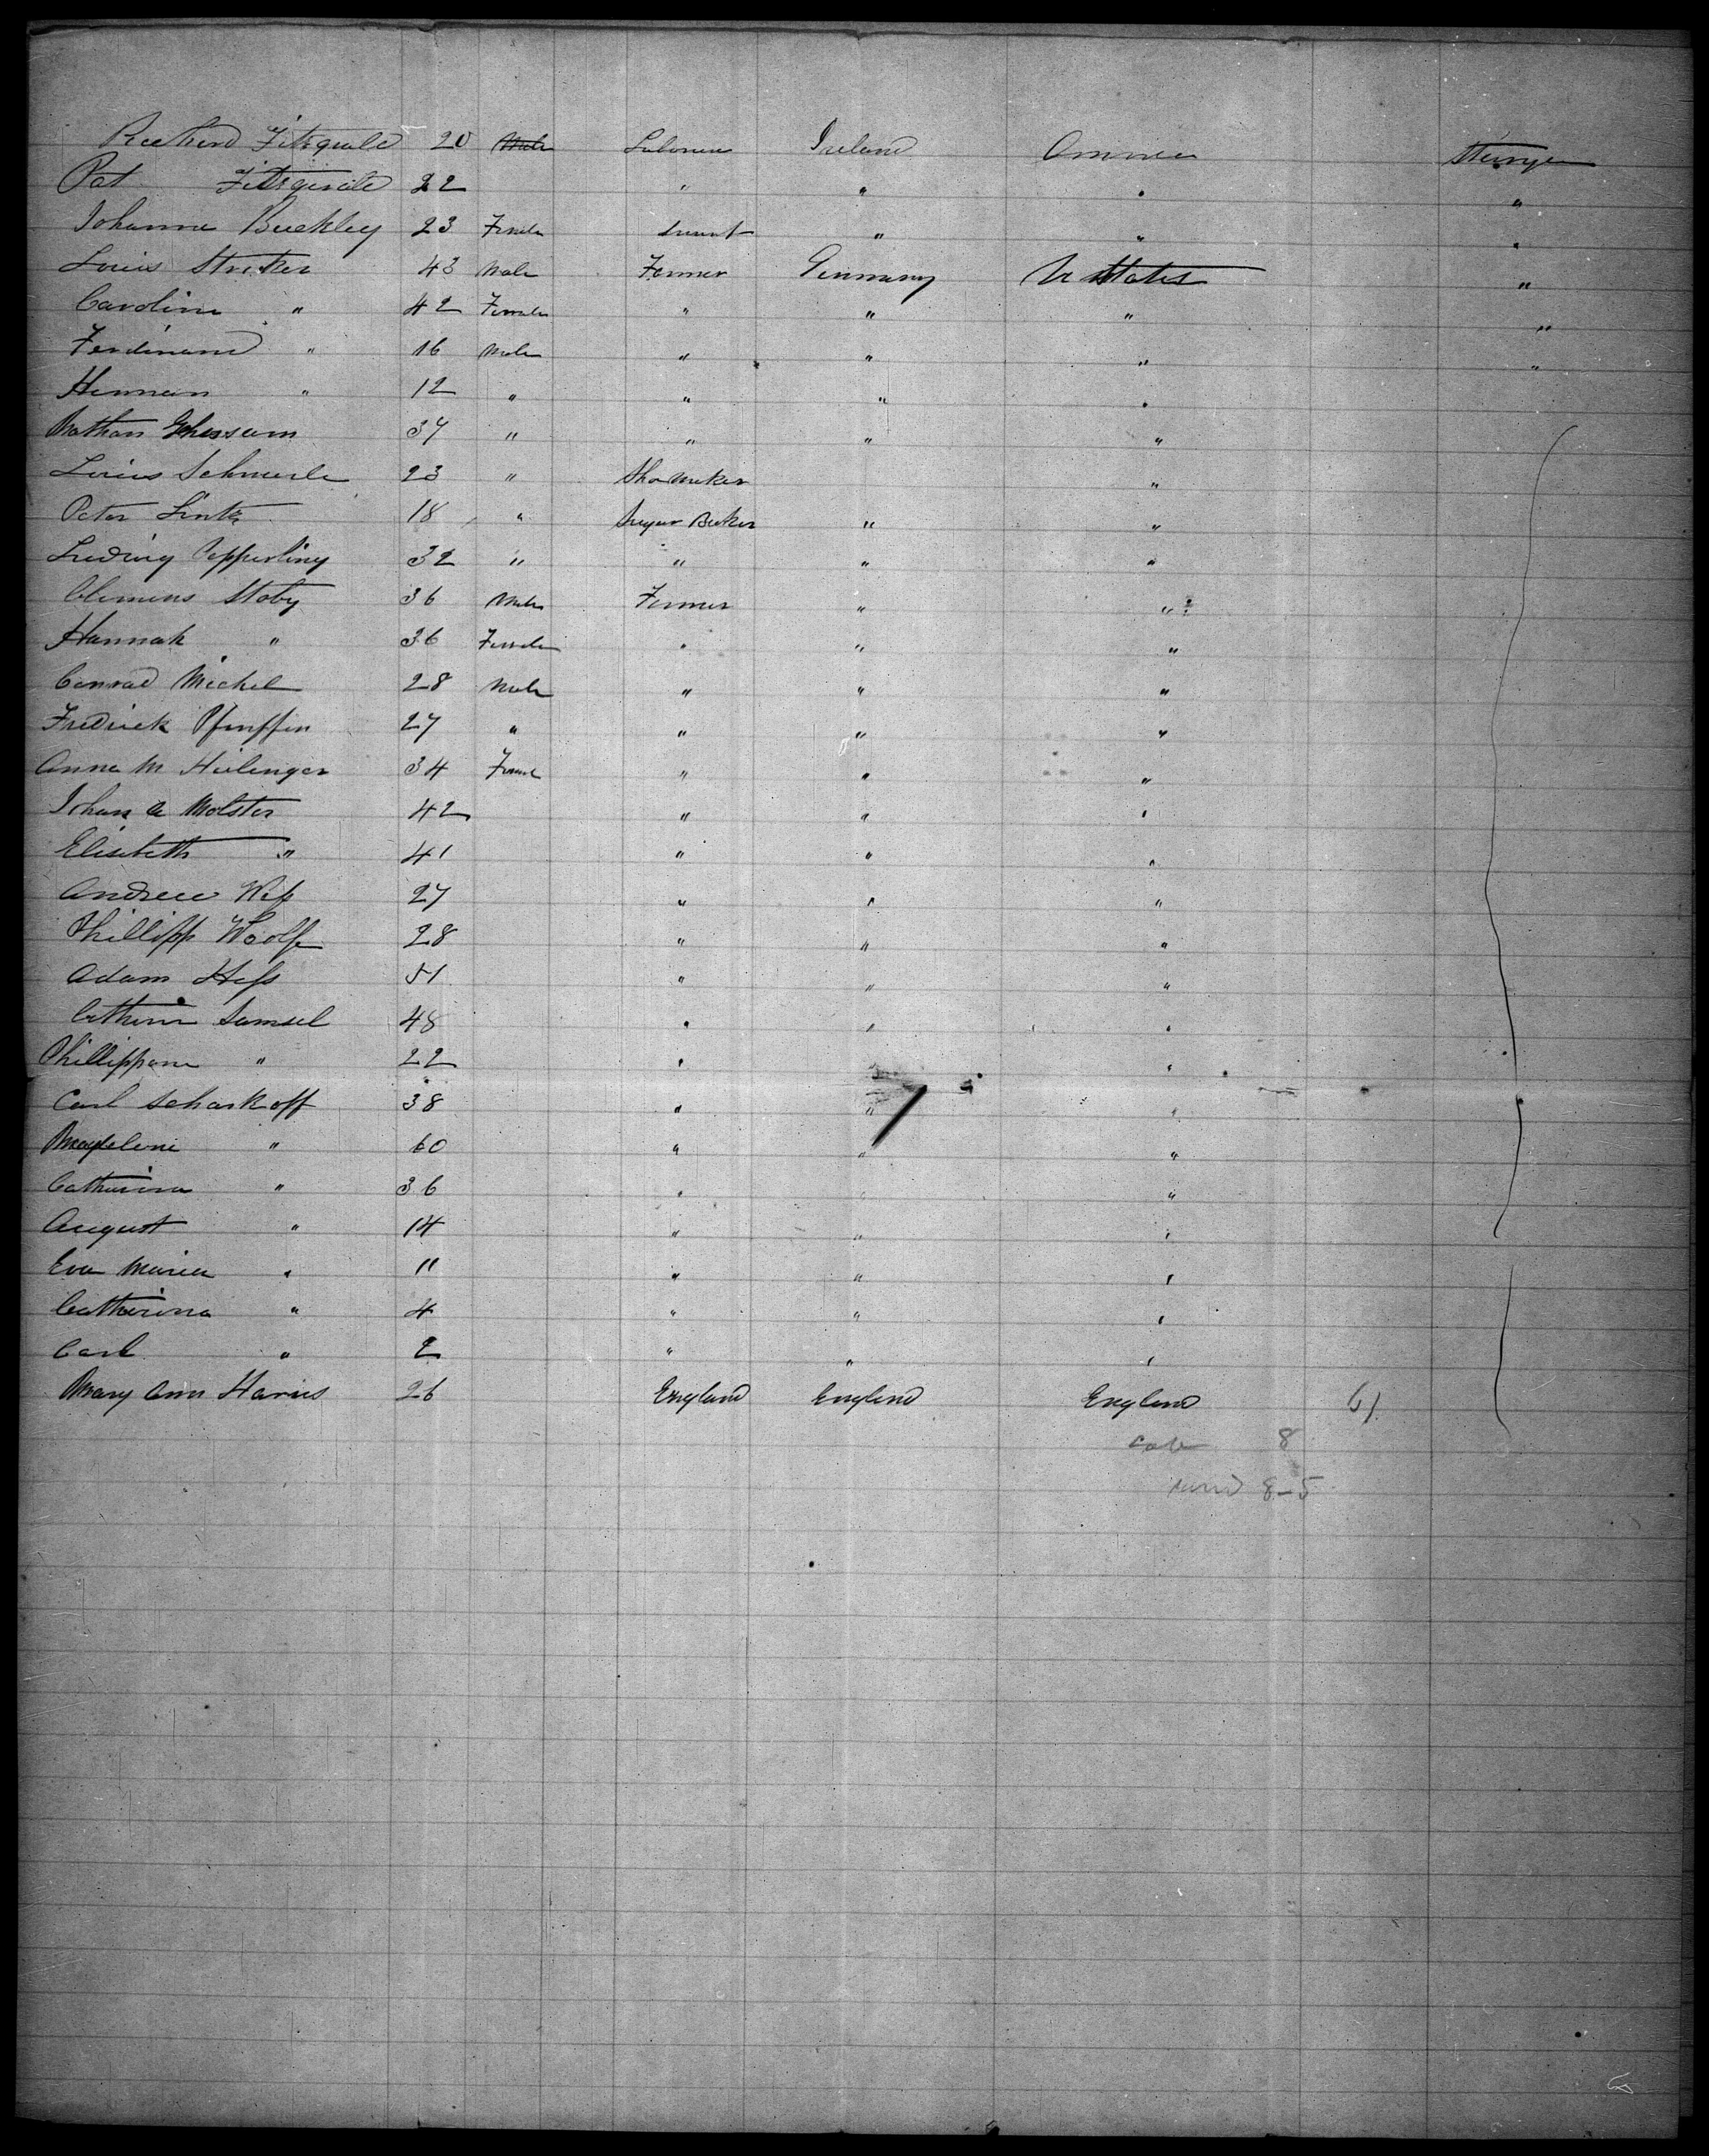 Richard Fitzgerald 20 Male Laborer Ireland America Steerage
Pat Fitzgerald 22 " " " "
Johanna Buckley 23 Female Servant " " "
Louis Striker 43 Male Farmer Germany U States "
Caroline " 42 Female " " " "
Ferdinand " 16 Male " " " "
Herman " 12 " " " "
Nathan 37 " " " "
Louis Schmerle 23 " Shomaker "
Peter Lintz 18 " Sugar Baker " "
Ludwig Pepperling 32 " " " "
Clemens Stoby 36 Male Farmer " "
Hannah " 36 Female " " "
Conrad Michel 28 Male " " "
Fredrick 27 " " " "
Anna M Heilenger 34 Female " " "
Johan A Molster 42 " " "
Elisebeth " 41 " " "
Andrew 27 " " "
Phillipp Woolf 28 " " "
Adam Hess 51 " " "
Samsel 48 " " "
Phillippine " 22 " "
Carl Scharkoff 38 " " "
Magdelene " 60 " " "
Catharina " 36 " " "
August " 14 " " "
Eva Maria " 11 " " "
Catharina " 4 " " "
Carl " 2 " " "
Mary Ann Harris 26 England England England
8
8-5